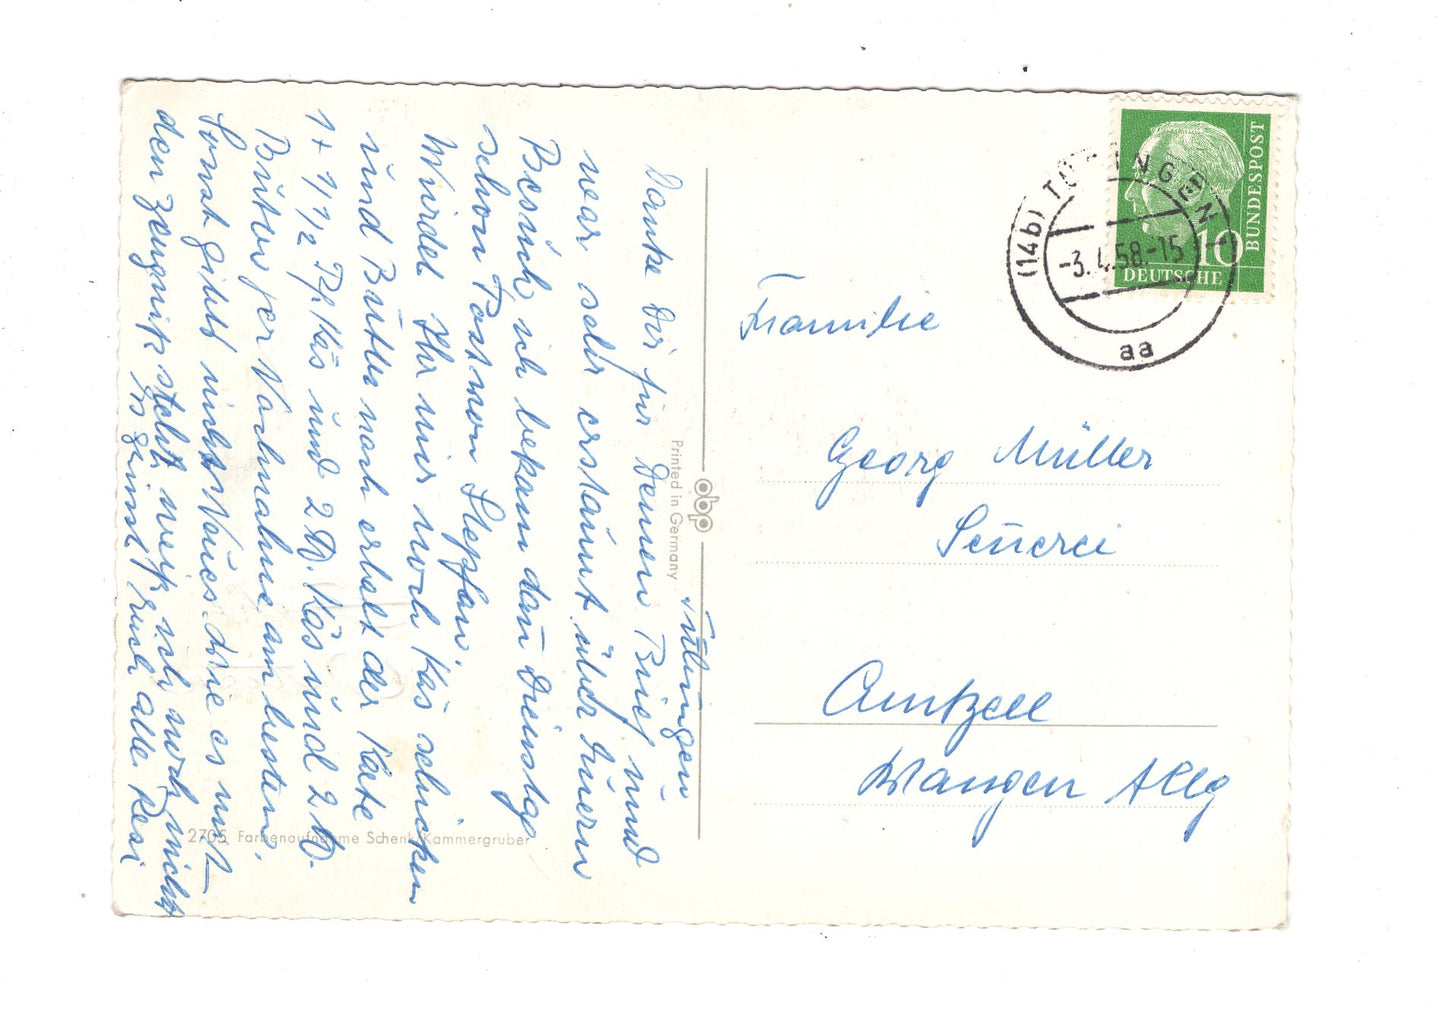 Tübingen
Danke Dir für Deinen Brief und
war sehr erstaunt über Euern
Besuch ich bekam den Dienstag
schon Post von Stephan.
Würdet Ihr mir noch Käs schicken
und Butter noch erhalt der Käte
1 + 1 1/2 Pf. Käs und 2 Käs und 2
Butter per Nachnahme am besten.
Sonst gibts nichts Neues. Wie es mit
den Zeugniß steht weiß ich noch nicht
Es grüsst Euch alle Resi
Printed in Germany
obp
2705 Farbenaufnahme Schenk/Kammergruber
DEUTSCHE
BUNDESPOST
10
(14b) TÜBINGEN 1
-3.4.58.-15
aa
Familie
Georg Müller
Senerei
Amtzell
Wangen Allg